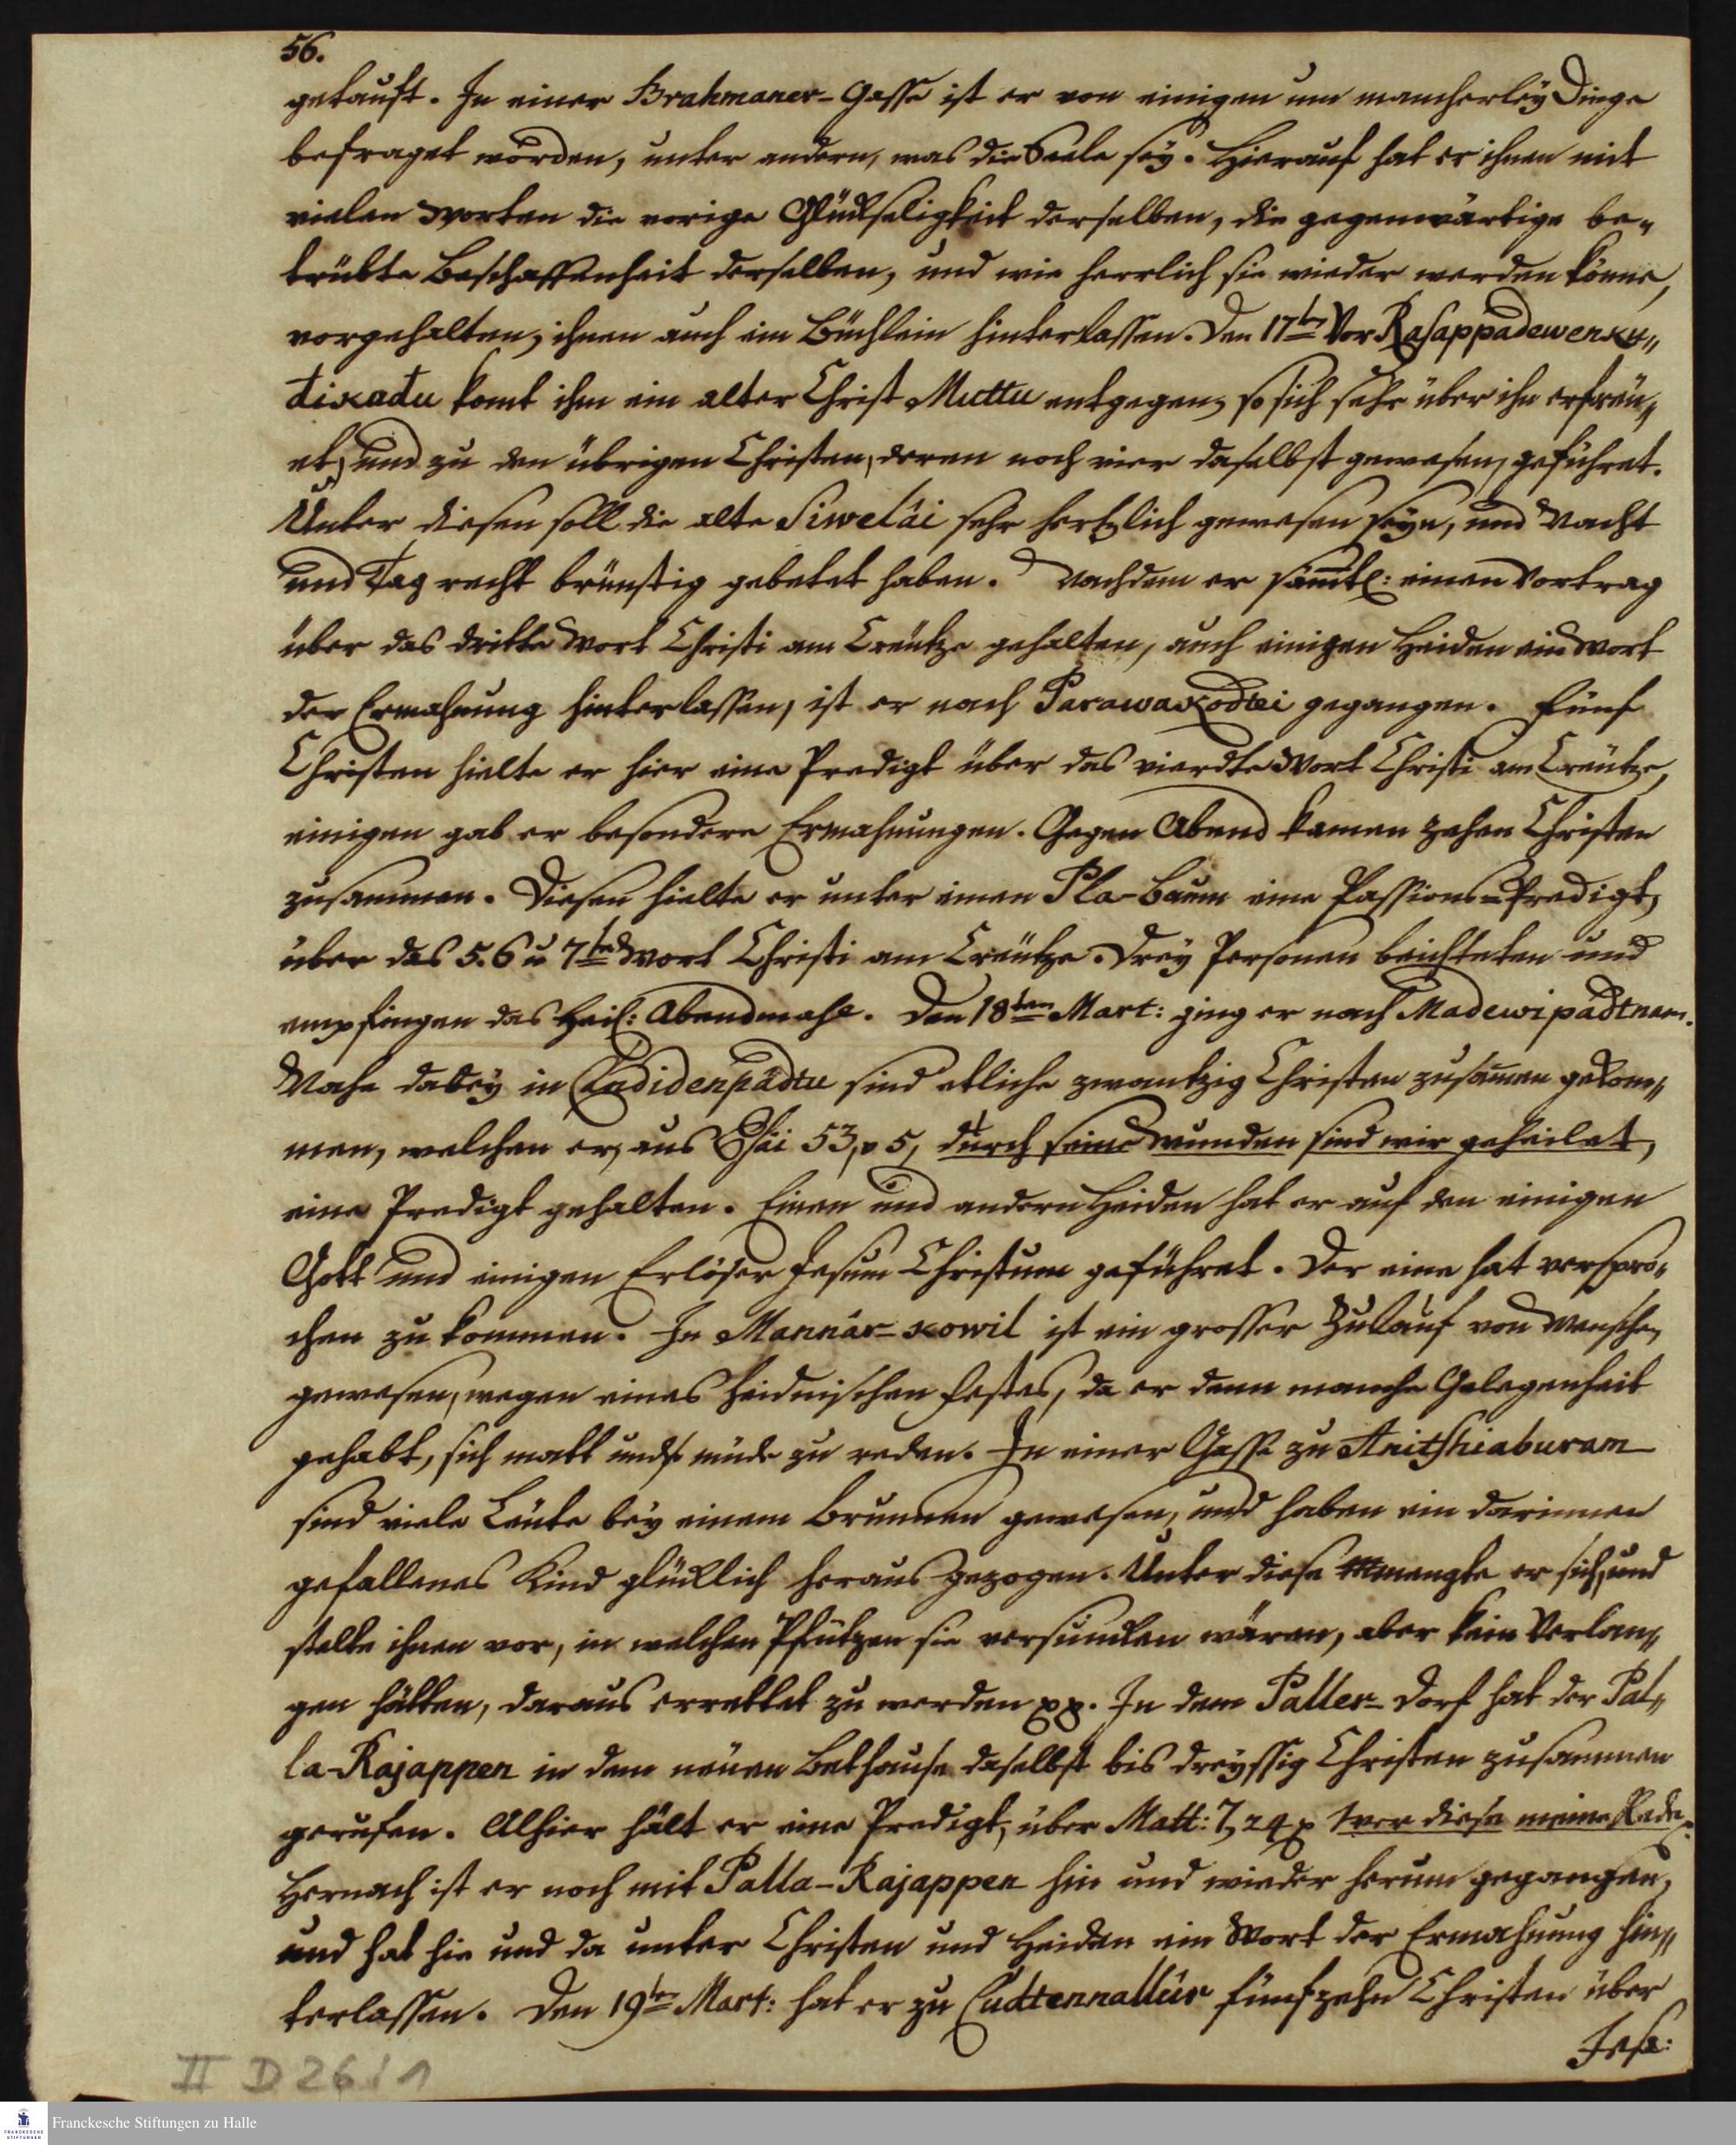 56.
getauft. In einer Brahmaner-Gasse ist er von einigen um mancherley Dinge
befraget worden, unter andern, was die Seele sey. Hierauf hat er ihnen mit
vielen Worten die vorige Glückseligkeit derselben, die gegenwärtige be„
trübte Beschaffenheit derselben, und wie herrlich sie wieder werden könne,
vorgehalten, ihnen auch ein Büchlein hinterlassen. Den 17t Vor Rasappadewenku„
tikadu komt ihm ein alter Christ Muttu entgegen, so sich sehr über ihn erfreu„
et, und zu den übrigen Christen, deren noch vier daselbst gewesen, geführet.
Unter diesen soll die alte Siwelái sehr hertzlich gewesen seyn, und Nacht
und Tag recht brünstig gebetet haben. Nachdem er sämtl: einen Vortrag
über das dritte Wort Christi am Creutze gehalten, auch einigen Heiden ein Wort
der Ermahnung hinterlassen, ist er nach Parawakodtei gegangen. Fünf
Christen hielte er hier eine Predigt über das vierdte Wort Christi am Creutze,
einigen gab er besondere Ermahnungen. Gegen Abend kamen zehen Christen
zusammen. Diesen hielte er unter einen Pla-Baum eine Passions-Predigt,
über das 5. 6 u 7te Wort Christi am Creutze. Drey Personen beichteten und
empfingen das Heil: Abendmahl. Den 18ten Mart: ging er nach Madewipádtnam.
Nahe dabey in Cudidenpádtu sind etliche zwantzig Christen zusamen gekom„
men, welchen er, aus Esai 53, v 5, durch seine Wunden sind wir geheilet,
eine Predigt gehalten. Einen und andern Heiden hat er auf den einigen
Gott und einigen Erlöser Jesum Christum geführet. Der eine hat verspro„
chen zu kommen. In Mannár-kowil ist ein grosser Zulauf von Menschen
gewesen, wegen eines Heidnischen Festes, da er denn manche Gelegenheit
gehabt, sich matt und müde zu reden. In einer Gasse zu Anitshiaburam
sind viele Leute bey einem Brunnen gewesen, und haben ein darinnen
gefallenes Kind glücklich heraus gezogen. Unter diese mengte er sich, und
stelte ihnen vor, in welchen Pfützen sie versuncken wären, aber kein Verlan„
gen hätten, daraus errettet zu werden pp. In dem Paller-Dorf hat der Pal„
la-Rajappen in dem neuen Bethause daselbst bis dreyssig Christen zusammen
gerufen. Alhier hält er eine Predigt, über Matt: 7, 24 p wer diese meine Rede p.
Hernach ist er noch mit Palla-Rajappen hin und wieder herum gegangen,
und hat hie und da unter Christen und Heiden ein Wort der Ermahnung hin„
terlassen. Den 19ten Mart: hat er zu Cudtennallúr fünfzehn Christen über
Jesa:
II D 26/1
Franckesche Stiftungen zu Halle
FRANCKESCHE
STIFTUNGEN